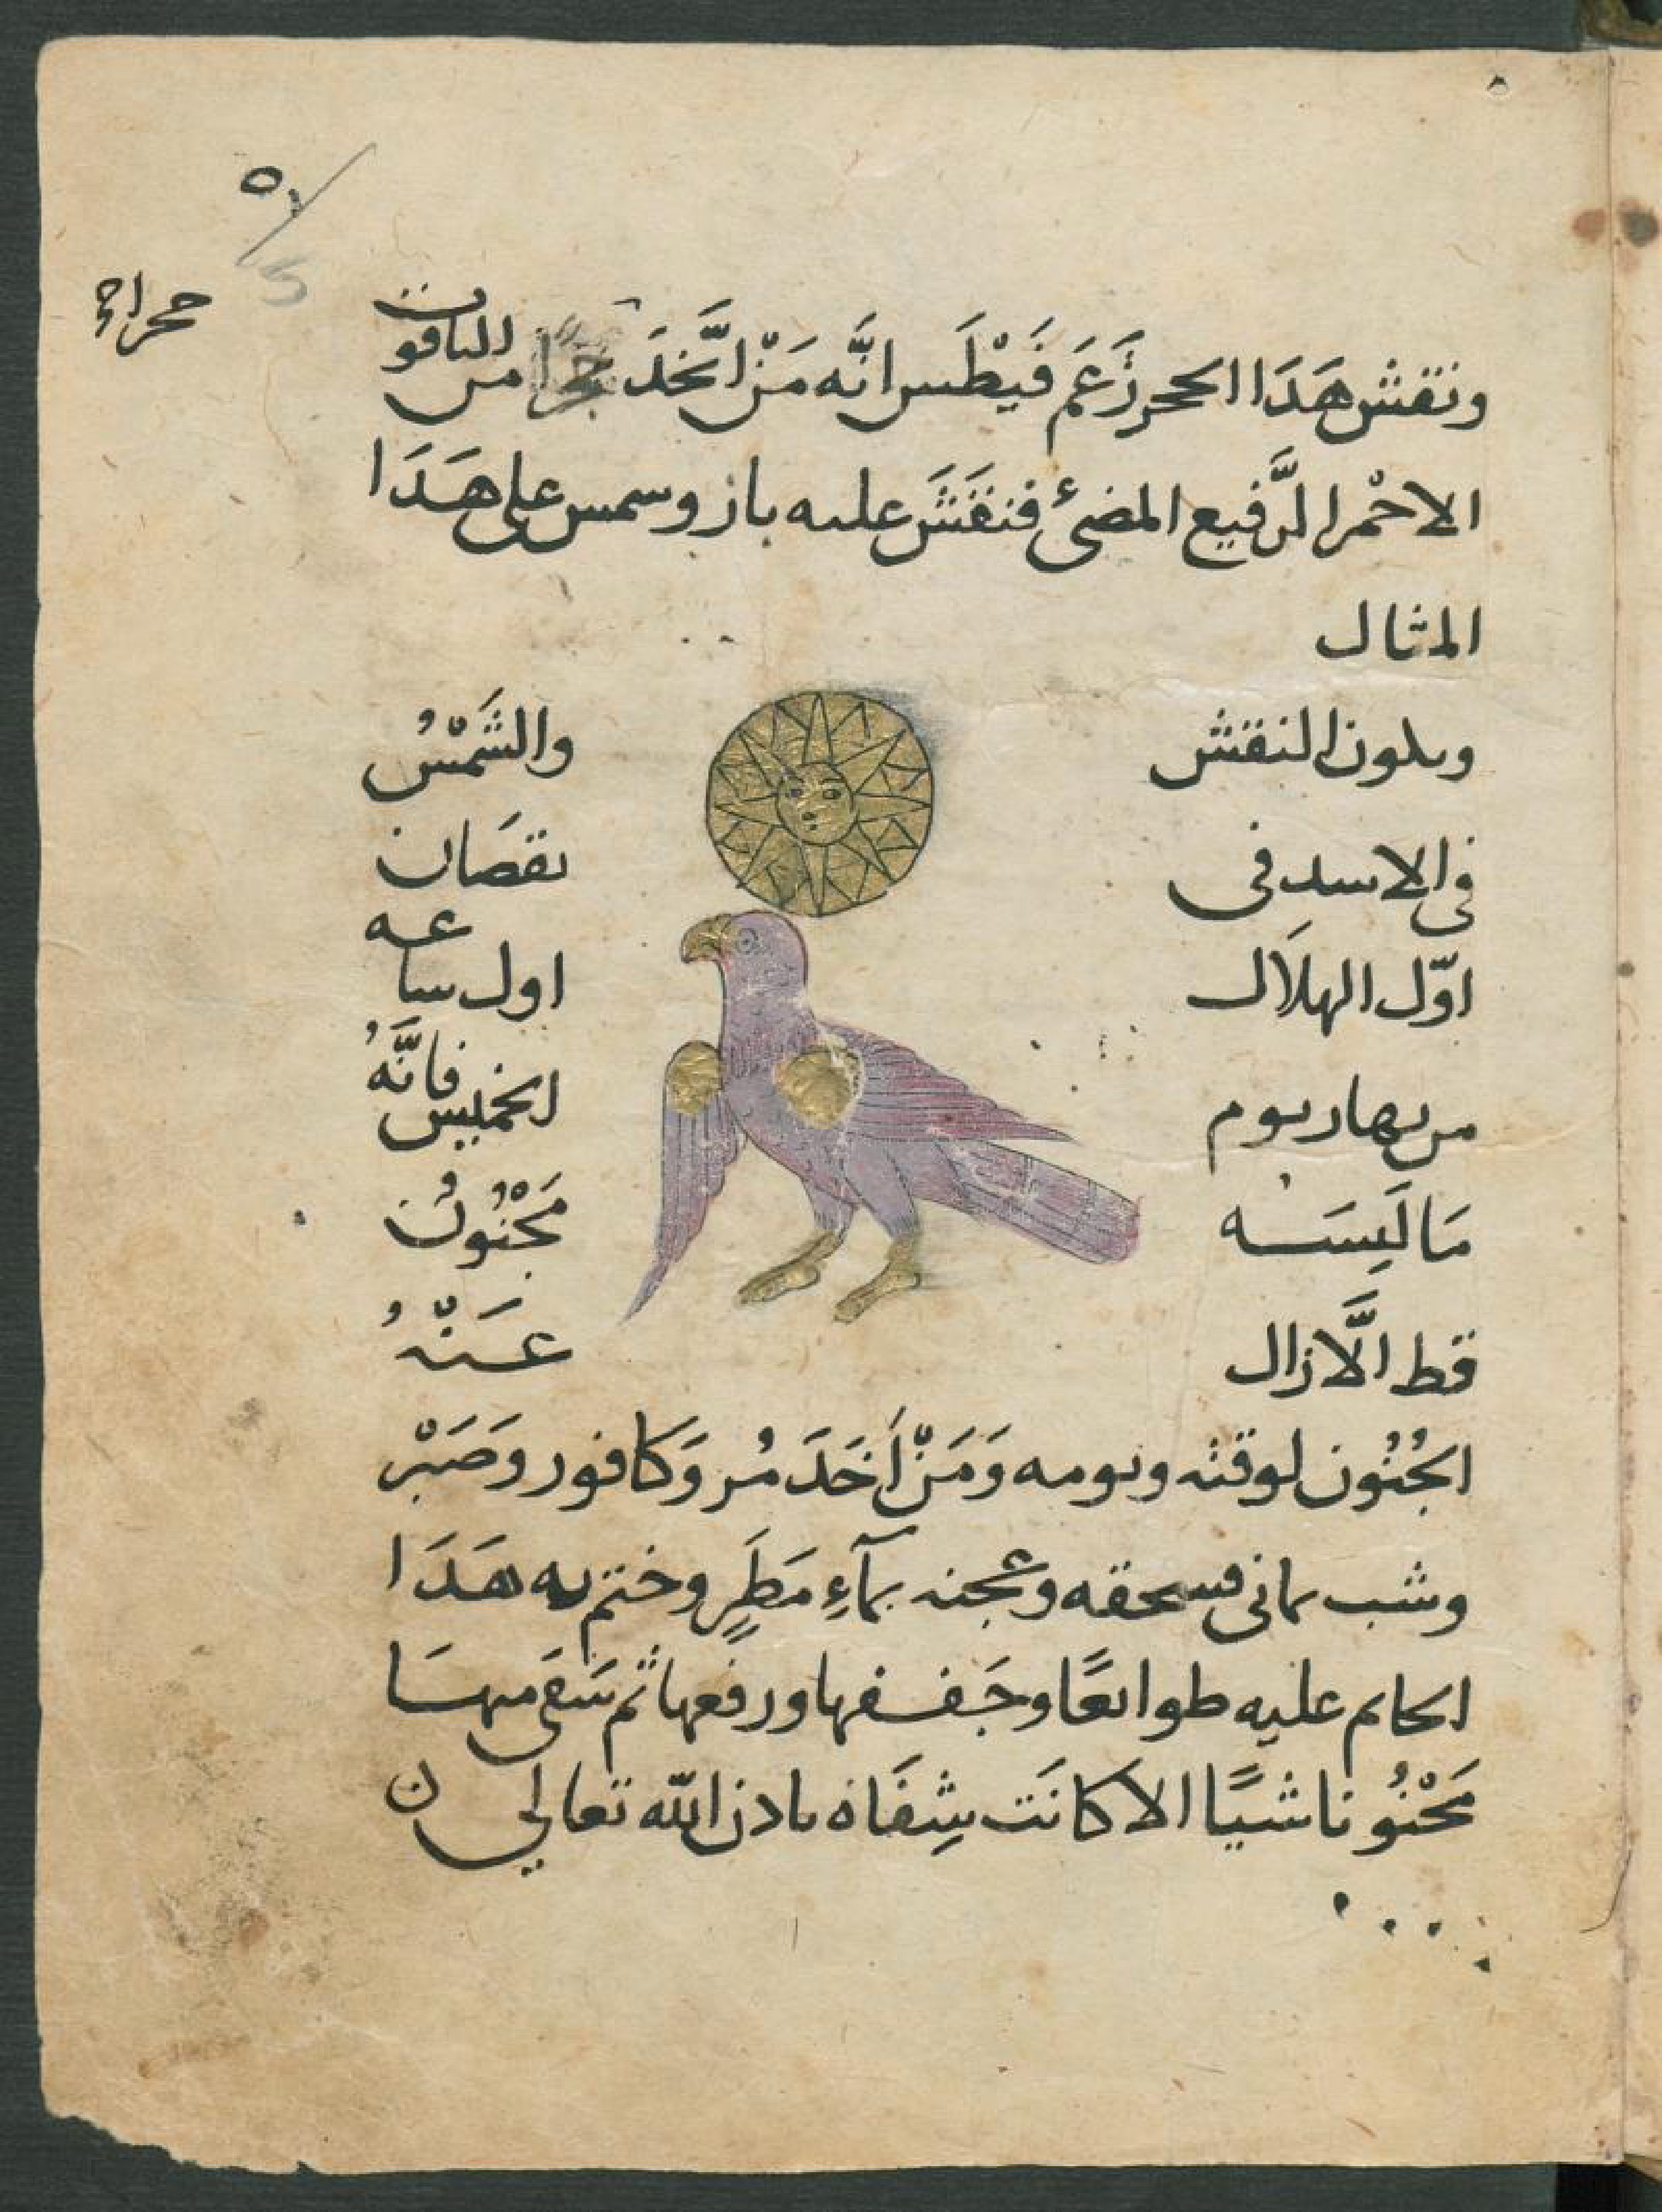 ٥
5
ونقش هَدَا الححر زَعَم فَيْطَس انَّه مَنْ اتَّخدَ حجرًا من الىاقوت
الاحْمر الرَّفيع المضىء فنقَشَ علىه باز وسمس على هَدَا
المثال
وىلون النقش والشَمْسُ
فى الاسد فى نقصَان
اوّل الهلَال اول ساعه
من ىهار ىوم الخميس فانَّهُ
مَا لَبِسَه مَجْنُونٌ
قط الَّا زال عَنْهُ
الجُنُون لوقته وىومه وَمَنْ اَخَدَ مُر وَكافور وَصَبْر
وشب ىمانى فسحقه وعجنه بمآءِ مَطَرٍ وختم به هَدَا
الحاىم عليه طواىعًا وجَففها ورفعها ثم سَقى مىهَا
مَجْنُونا شيًا الا كانَت شِفَاه ىادن الله تعالى